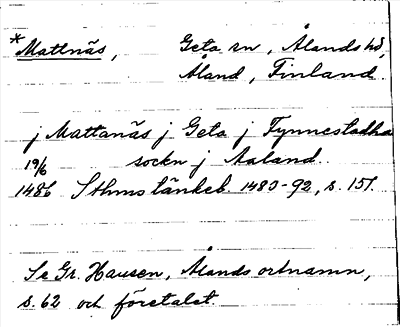 *Mattnäs, Geta sn, Ålands hd,
Åland, Finland.
j Mattanäs j Geta j Fynnestadha
19/6 sockn j Aaland.
1486 Sthms tänkeb. 1483-92, s. 157.
Se Gr. Hausen, Ålands ortnamn,
s. 62 och företalet.